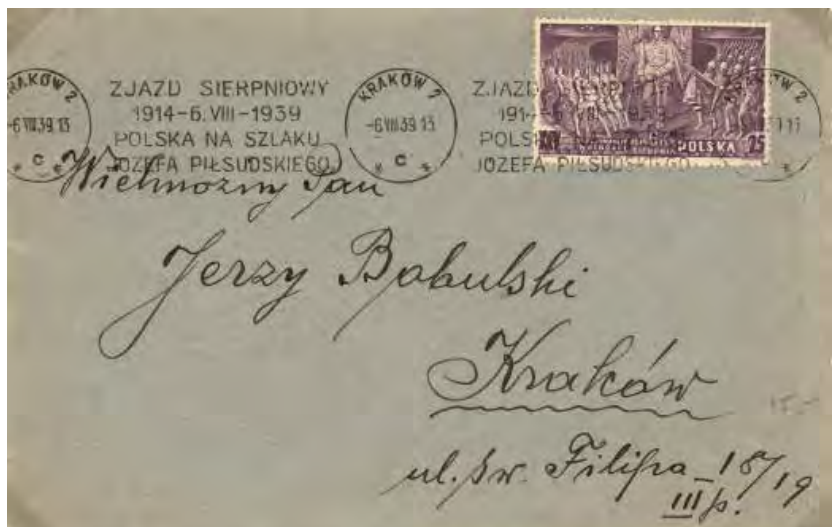 KRAKÓW 2
-6 VIII 39 13
C
ZJAZD SIERPNIOWY
1914-6.VIII-1939
POLSKA NA SZLAKU
JÓZEFA PIŁSUDSKIEGO
KRAKÓW 2
-6 VIII 39 13
C
ZJAZD SIERPNIOWY
1914-6.VIII-1939
POLSKA NA SZLAKU
JÓZEFA PIŁSUDSKIEGO
POLSKA
25
Wielmożny Pan
Jerzy Bobulski
Kraków
ul. św. Filipa 18/19
III p.